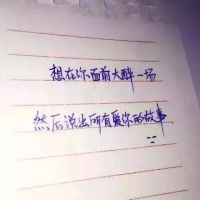 想在你面前大醉一场
然后说出所有爱你的故事